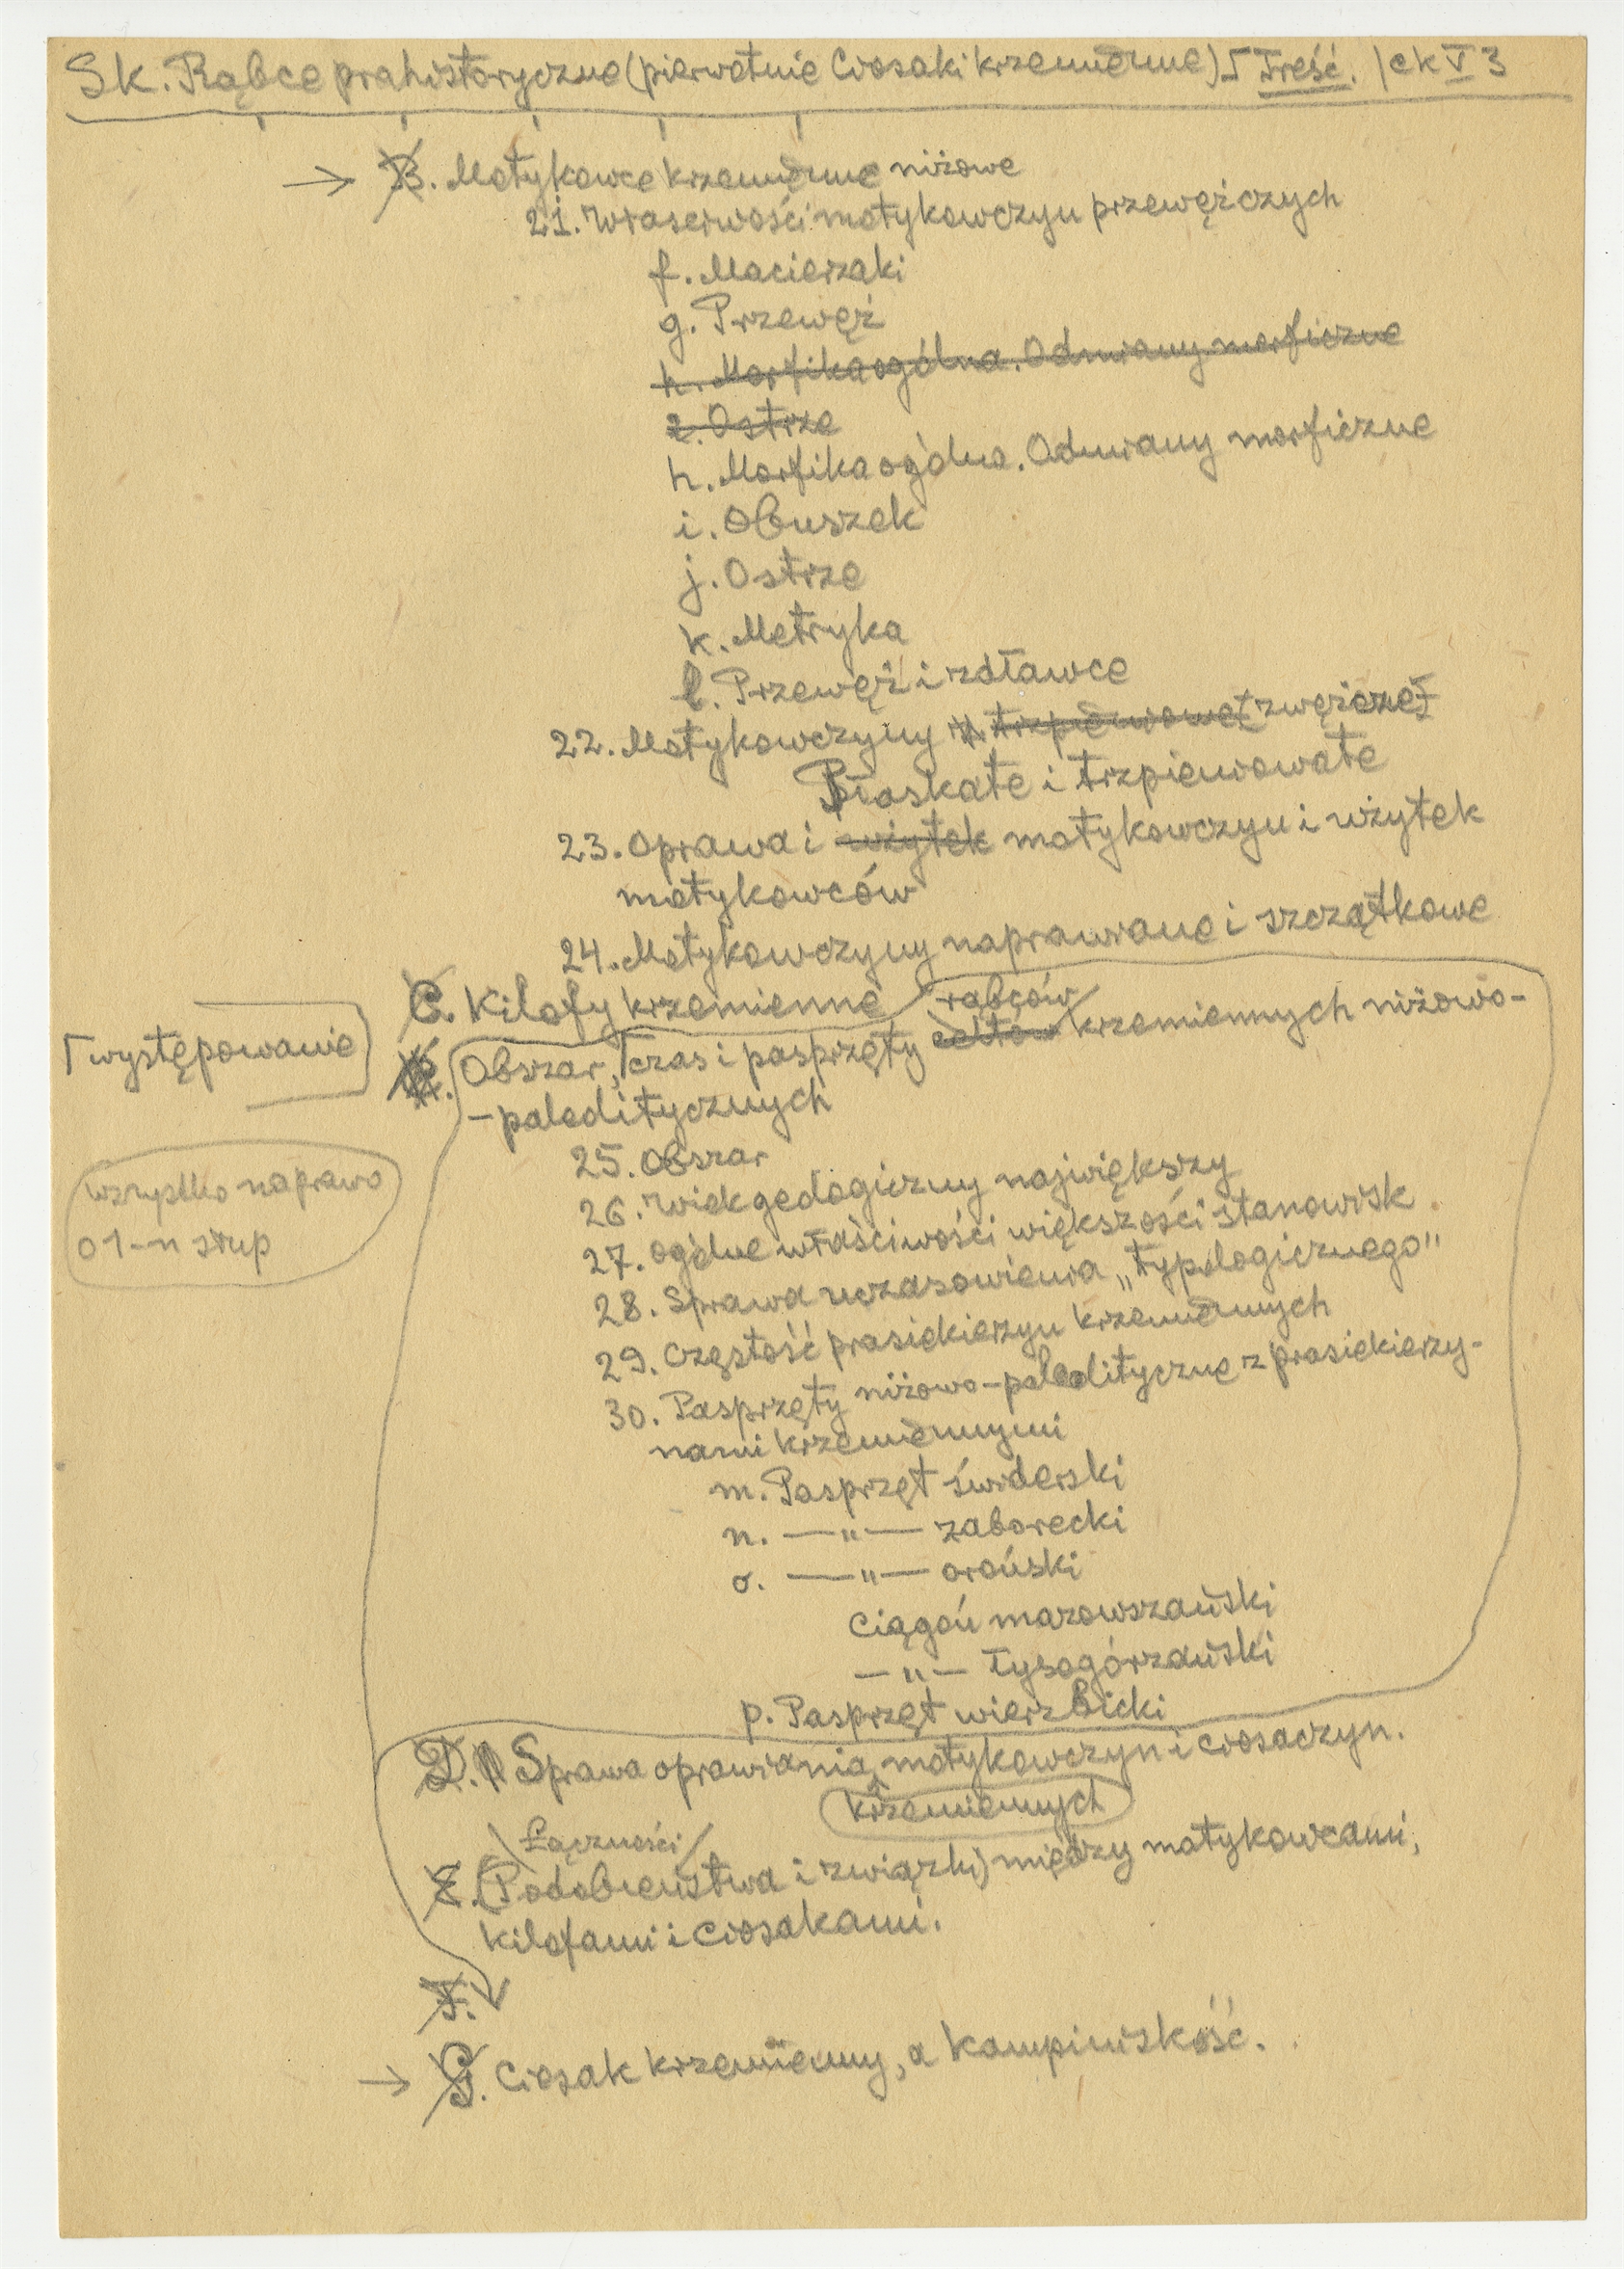 Sk. Rąbce prahistoryczne (pierwotnie Ciosaki krzemienne) Treść. | ck V 3
→ B. Motykowce krzemienne niżowe
21. Właściwości motykowczyn przewęźczych
f. Macierzaki
g. Przewęź
h. Morfika ogólna. Odmiany morficzne
i. Ostrze
h. Morfika ogólna. Odmiany morficzne
i. Obuszek
j. Ostrze
k. Metryka
l. Przewęź i zdławce
22. Motykowczyny trzpieniowate zwęźczeł
Płoskate i trzpieniowate
23. Oprawa i użytek motykowczyn i użytek
motykowców
24. Motykowczyny naprawiane i szczątkowe
C. Kilofy krzemienne
rąbców
Obszar, czas i pasprzęty celtów krzemiennych niżowo-
występowanie
-paleolitycznych
25. Obszar
wszystko naprawo
o 1-n słup
26. Wiek geologiczny największy
27. Ogólne właściwości większości stanowisk
28. Sprawa uczasowienia „typologicznego"
29. Częstość prasiekierzyn krzemiennych
30. Pasprzęty niżowo-paleolityczne z prasiekierzy-
nami krzemiennymi
m. Pasprzęt świderski
n. —"— zaborecki
o. —"— oroński
Ciągoń mazowszański
—"— łysogórzański
p. Pasprzęt wierzbicki
D. Sprawa oprawiania motykowczyn i ciosaczyn.
krzemiennych
Łączności
E. (Podobieństwa i związki) między motykowcami,
kilofami i ciosakami.
F.
→ G. Ciosak krzemienny, a kampiniskość.